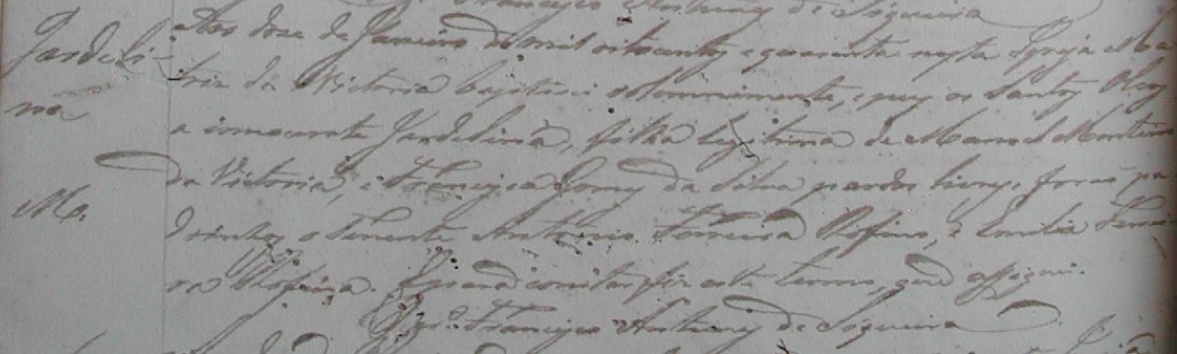 Francisco Antunes de Siqueira
Jardeli-
na
M.
Aos doze de Janeiro de mil oitocentos e quarenta nesta Igreja Ma-
triz da Victoria baptisei solemnemente, e puz os Santos Oleos
a innocente Jardelina, filha legitima de Manoel Monteiro
da Victoria, e Francisca Gomes da Silva pardos livres, forão pa-
drinhos o Tenente Antonio Ferreira Rofino, e Emilia Ferrei-
ra Rofina. E para constar fiz este termo, que assignei.
Francisco Antunes de Siqueira